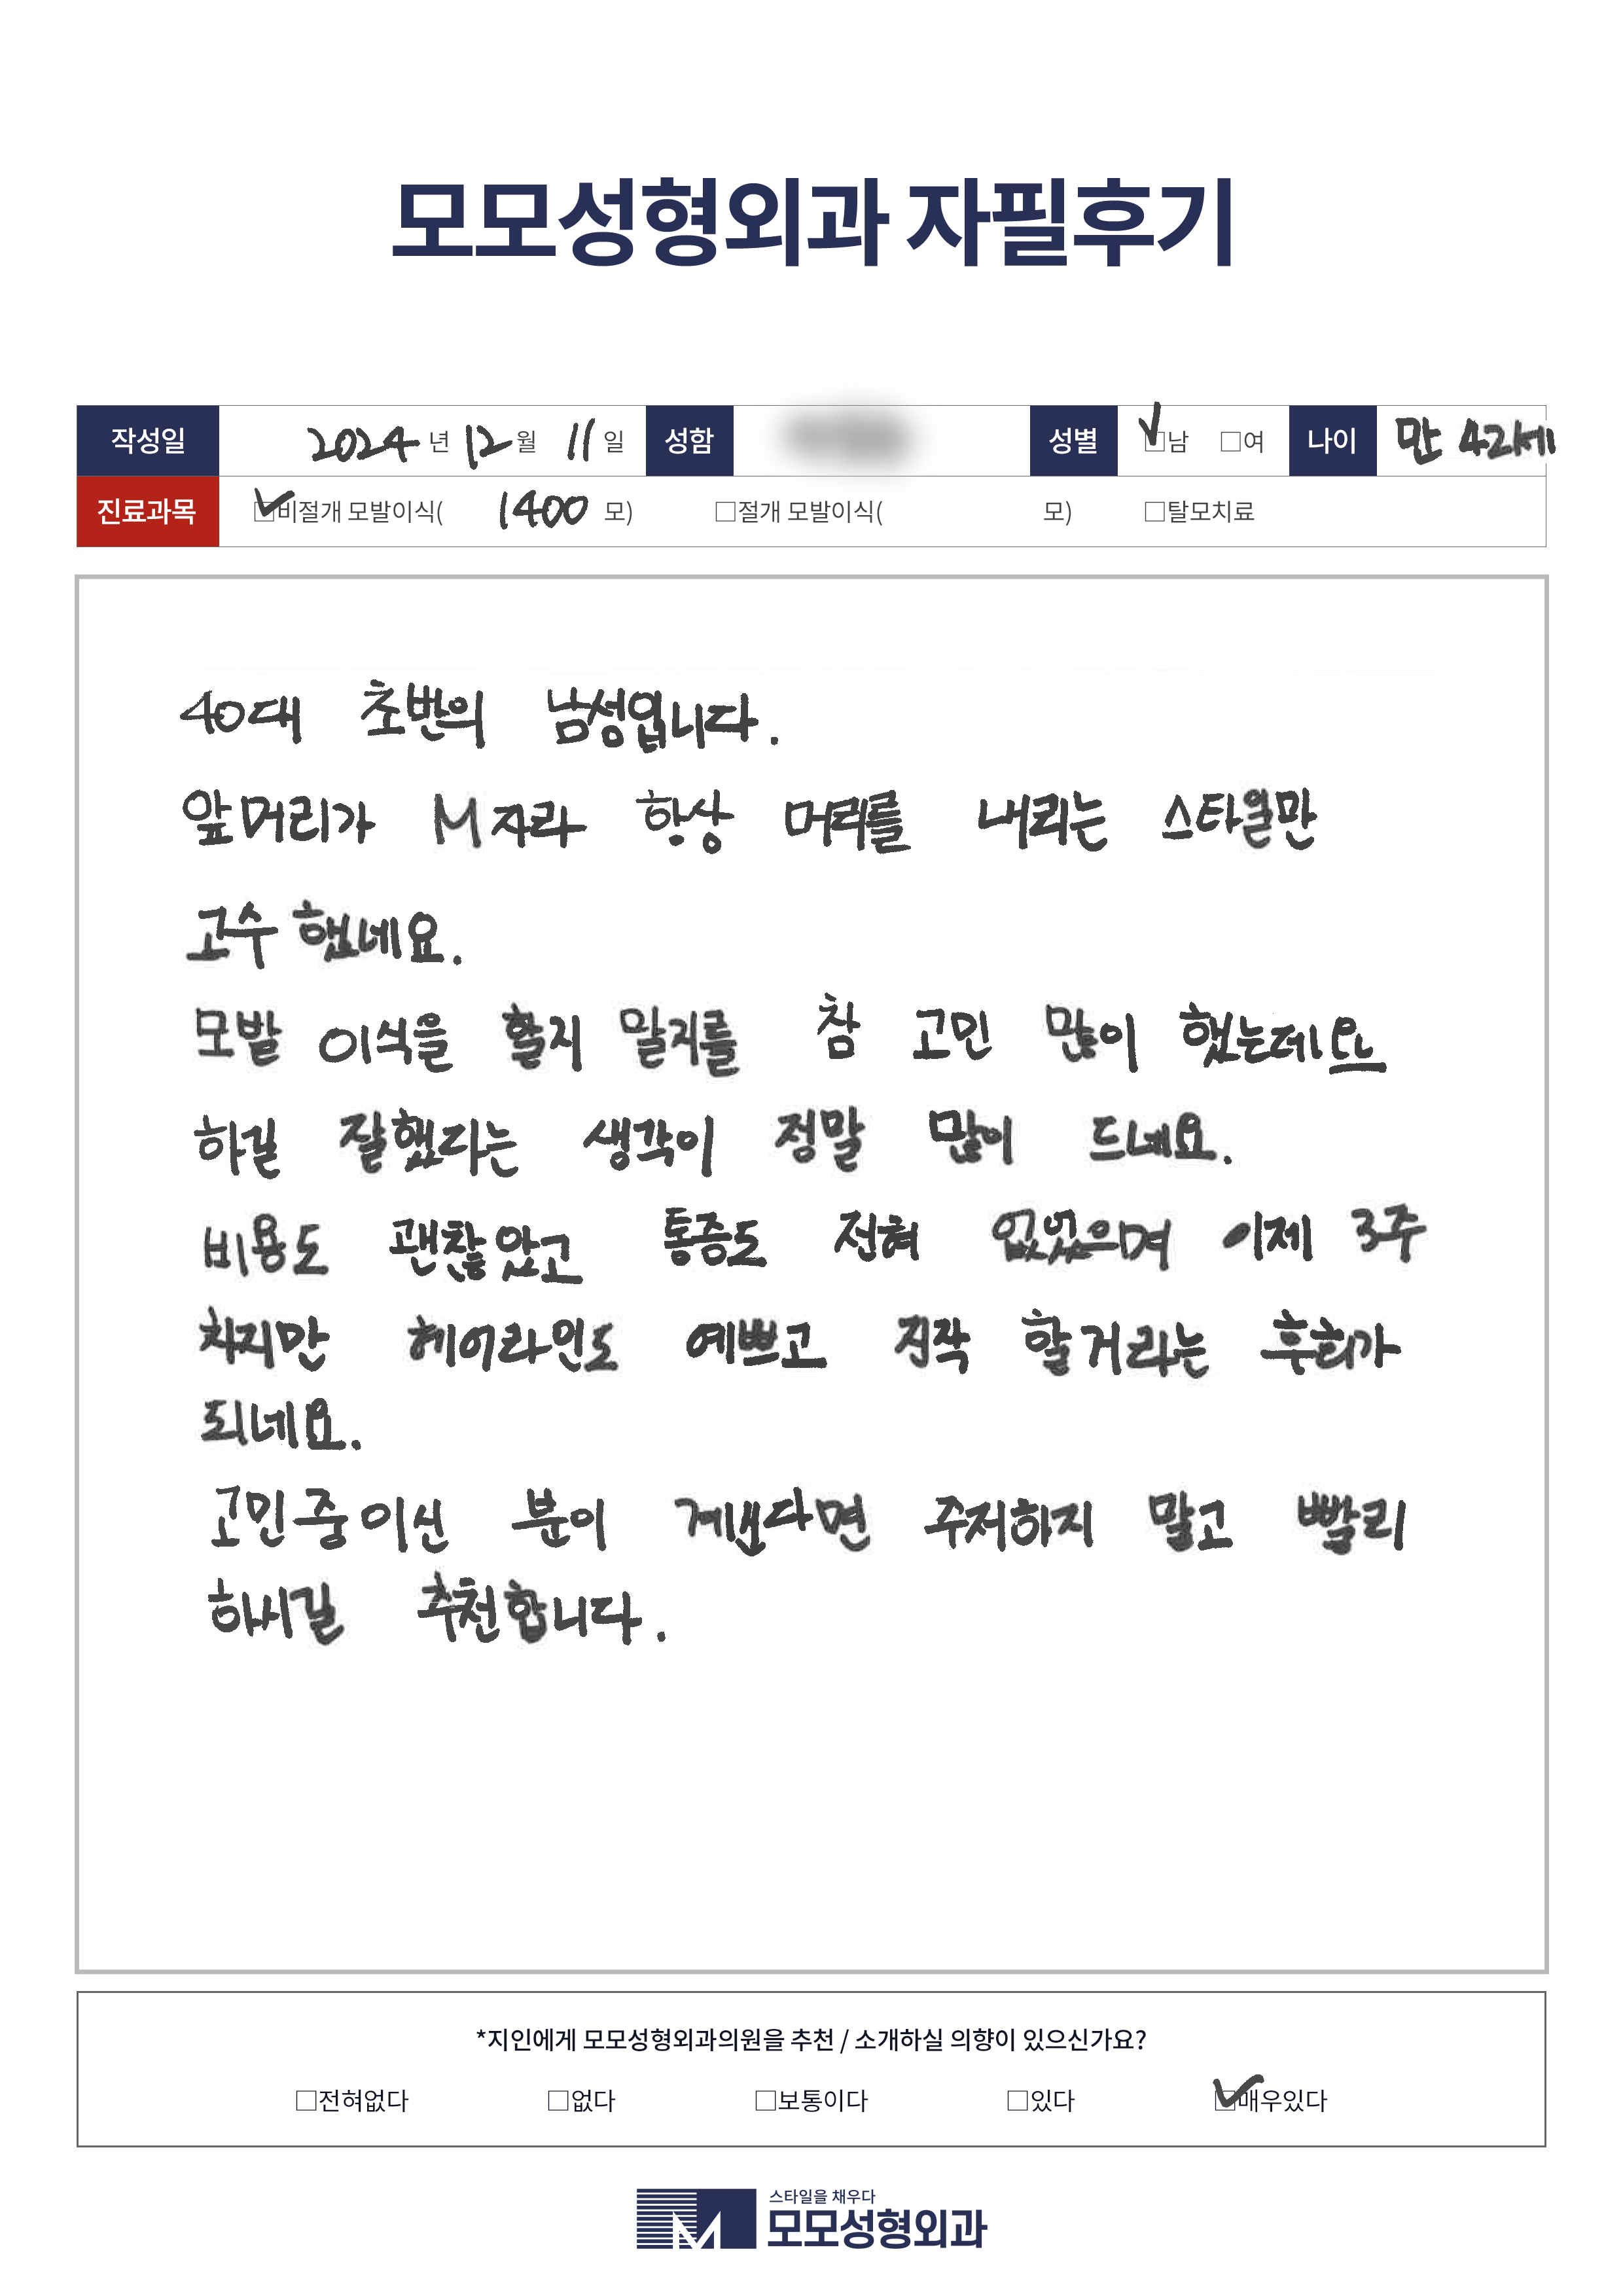 모모성형외과 자필후기
작성일 2024년 12월 11일 성함 성별 ☑남 □여 나이 만 42세
진료과목 ☑비절개 모발이식( 1400 모) □절개 모발이식( 모) □탈모치료
40대 초반의 남성입니다.
앞머리가 M자라 항상 머리를 내리는 스타일만
고수했네요.
모발 이식을 할지 말지를 참 고민 많이 했는데요
하길 잘했다는 생각이 정말 많이 드네요.
비용도 괜찮았고 통증도 전혀 없었으며 이제 3주
차지만 헤어라인도 예쁘고 진작 할거라는 후회가
되네요.
고민중이신 분이 계신다면 주저하지 말고 빨리
하시길 추천합니다.
*지인에게 모모성형외과의원을 추천 / 소개하실 의향이 있으신가요?
□전혀없다 □없다 □보통이다 □있다 ☑매우있다
스타일을 채우다
모모성형외과